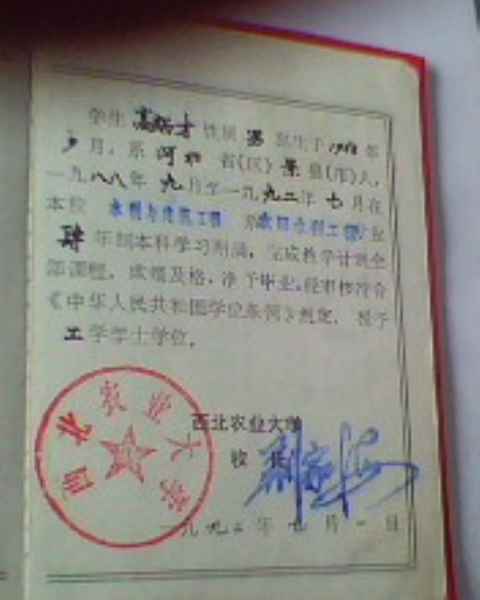 学生 高炳才 性别 男 出生于 1968 年
月，系 河北 省(区) 景 县(市)人，
一九八八年 九 月至一九九二年 七 月在
本校 水利与建筑工程 系 农田水利工程
肆 年制本科学习期满，完成教学计划全
部课程，成绩及格，准予毕业。经审核符合
《中华人民共和国学位条例》规定，授予
工 学学士学位。
西北农业大学
校 长
一九九二年七月一日
西北农业大学